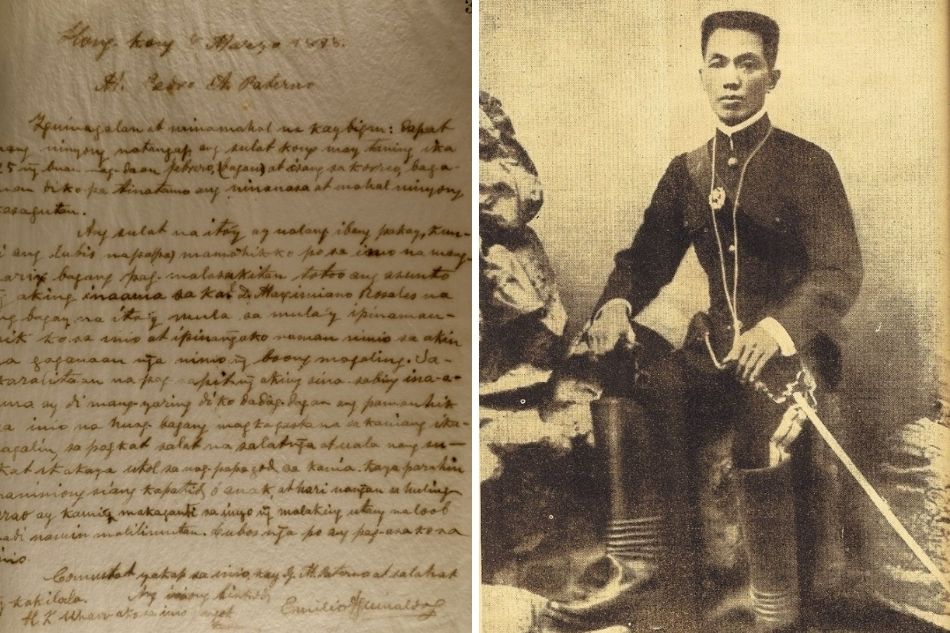 Hong-kong Marzo 1898.
At. Pedro A. Paterno
Iguinagalan at minamahal na kaybigan: Dapat
ninyong natangap ang sulat kong may taning ika
25 ng buan ng daan febrero, (bagan) at isang sa korreo, baga
man di ko pa tinatamo ang ninanasa at mahal ninyong
kasagutan.
Ang sulat na itoy ay ualang ibang pakay, kun-
di ang lubis na mamanhik ko po sa inio na mang-
bagang pag malasakitan totoo ang asunto
aking inaama sa kai D. Maximiano Rosales na
ng bagay na ito'y mula sa mula'y ipinaman-
ik ko sa inio at ipinangako naman ninio sa akin
na gaganaan nga ninio ng boong magaling. Sa
karalitaan na pag sapitin aking sina-sabing ina-a-
ama ay di mang-yaring di ko dadag-dagan ang pamanhik
sa inio na huag bagang magkagasta na sa kaniang ika-
gagalin, sa pagkat salat na salat nga at uala nang su-
kat ikakaya ukol sa nag papagod sa kania. Kaya parahin
na niniong siang kapatid ó anak, at hari nauan sa huling
arao ay kami'y makaganti sa inyo ng malaking utang na loob
hadi namin malilimutan. Lubos nga po ang pag-asa ko sa
inio.
Comustat yakap sa inio, kay G. M. Paterno at sa lahat
ng kakilala. Ang iniong
H. K. Wharo ako sa inio Emilio Aguinaldo